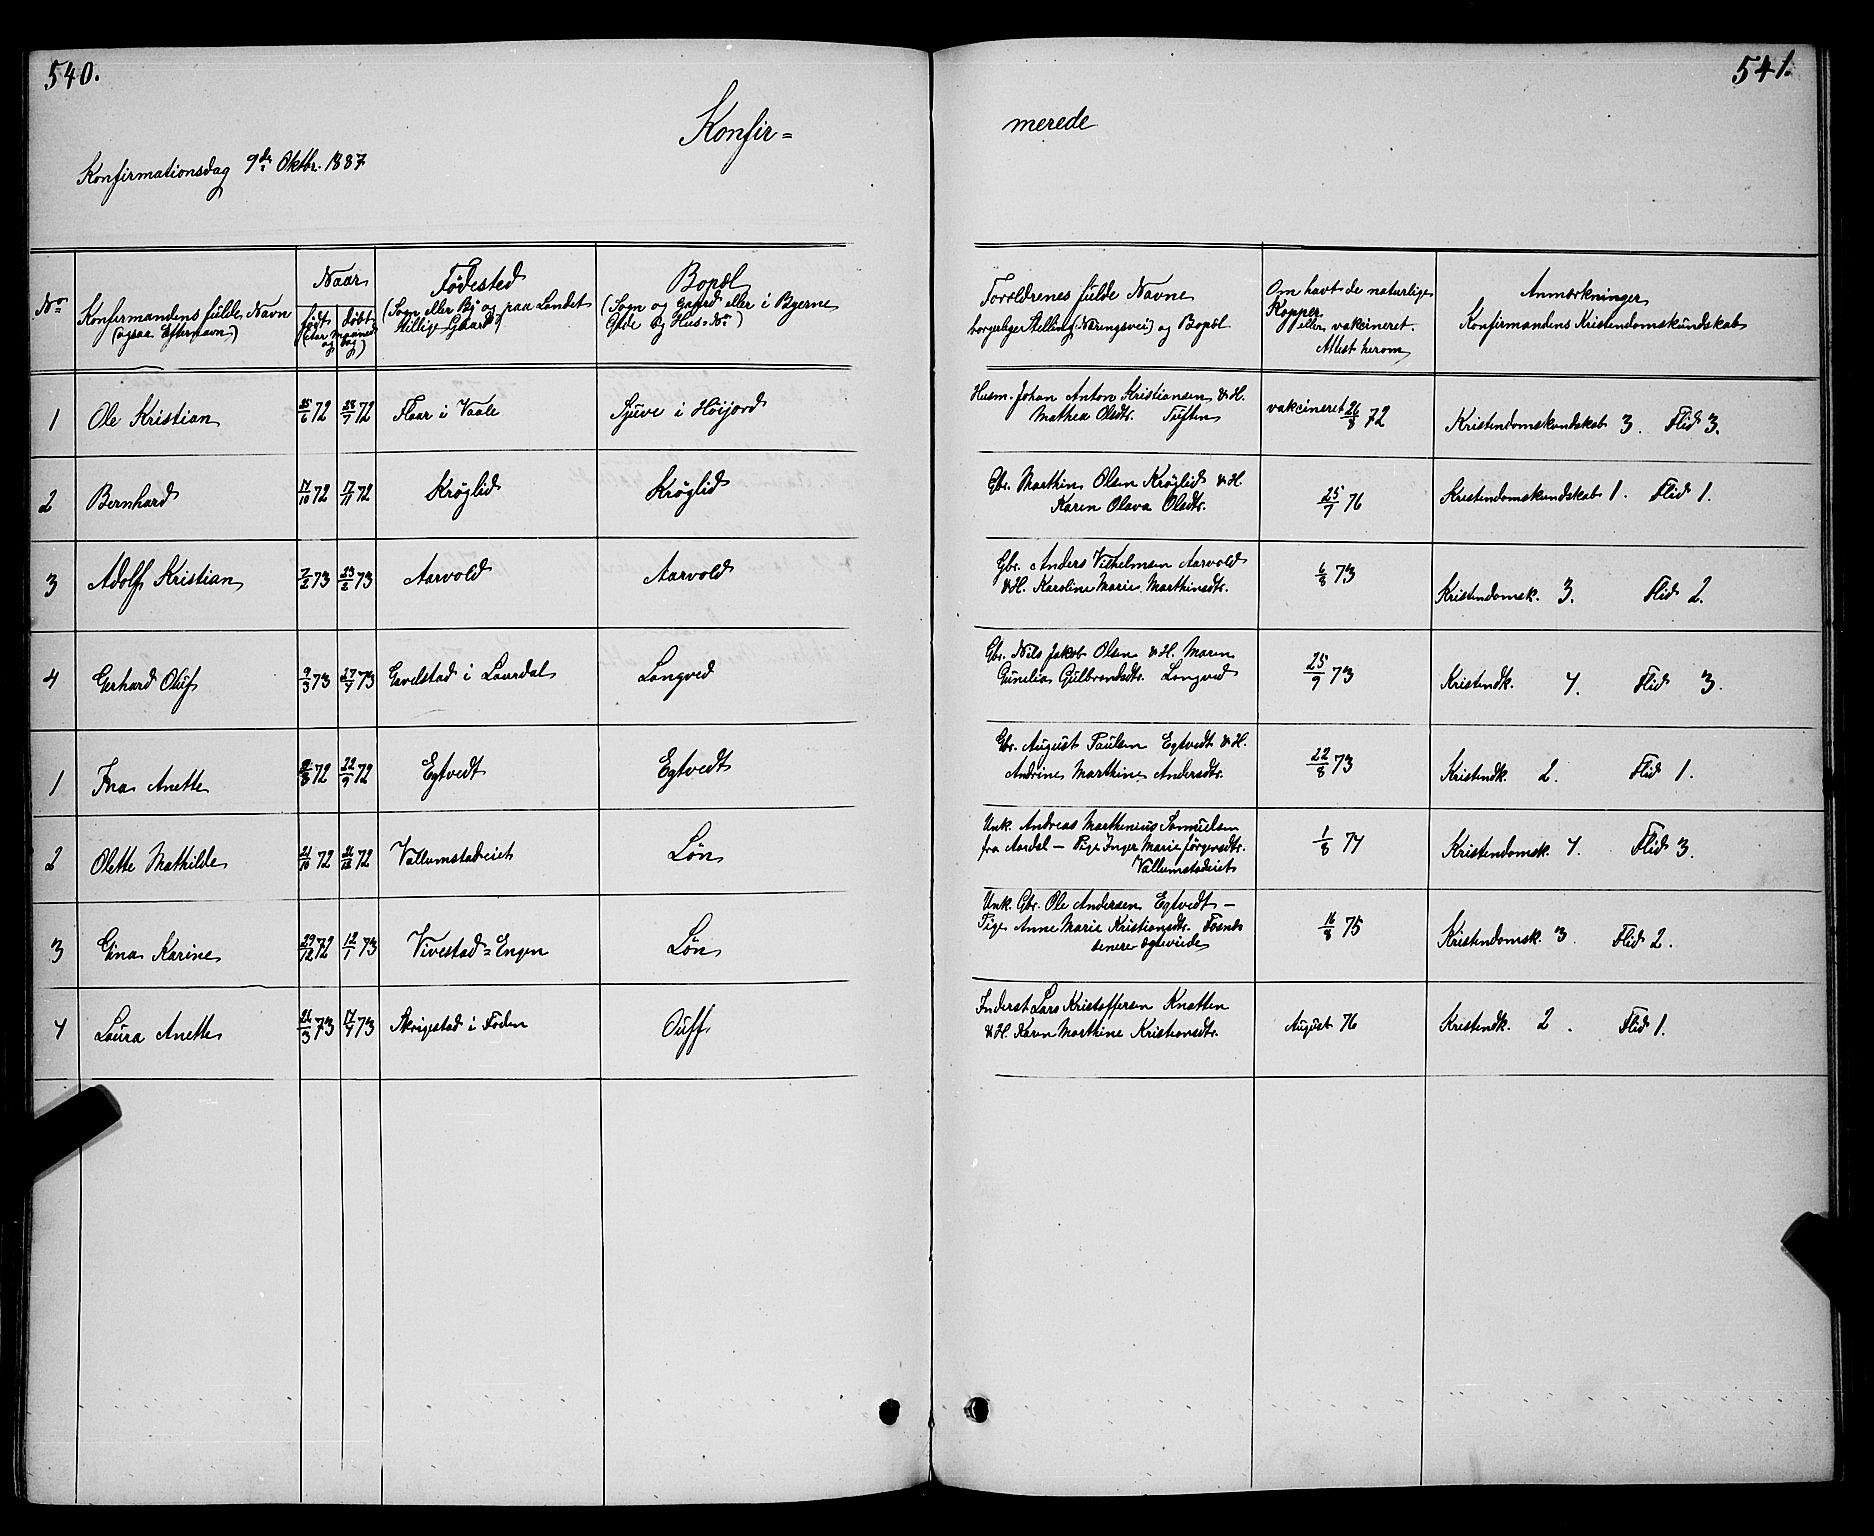 540.
541.
Konfir=
merede
Konfirmationsdag 9de Oktbr. 1887
No
Konfirmandens fulde Navn
(ogsaa Efternavn)
Naar
født
døbt
(Aar Maaned
og Dag)
Fødested
(Sogn eller By og paa Landet
tillige Gaard)
Bopæl
(Sogn og Gaard eller i Byerne
Gade og Hus-No)
Forældrenes fulde Navne
borgerlige Stilling (Næringsvei) og Bopæl
Om havt de naturlige
Kopper
eller vakcineret.
Attest herom
Anmærkninger
Konfirmandens Kristendomskundskab
1 Ole Kristian 25/6 72 28/7 72 Flaar i Vaale Sjuve i Høijord
Husm. Johan Anton Kristiansen & H.
Mathea Olsdtr. Tuften
vakcineret 26/8 72
Kristendomskundskab 3. Flid 3.
2 Bernhard 17/10 72 17/11 72 Krøglid Krøglid
Gbr. Marthin Olsen Krøglid & H.
Karen Olava Olsdtr.
25/7 76
Kristendomskundskab 1. Flid 1.
3 Adolf Kristian 7/2 73 23/2 73 Aarvold Aarvold
Gbr. Anders Vilhelmsen Aarvold
& H. Karoline Marie Marthinsdtr.
6/8 73
Kristendomsk. 3. Flid 2.
4 Gerhard Oluf 9/3 73 27/4 73 Gavelstad i Laurdal Langved
Gbr. Nils Jakob Olsen & H. Maren
Gunelia Gulbrandsdtr. Langved
25/9 73
Kristendk. 4. Flid 3.
1 Ina Anette 72 22/9 72 Egtvedt Egtvedt
Gbr. August Paulsen Egtvedt & H.
Andrine Marthine Andersdtr.
22/8 73
Kristendk. 2. Flid 1.
2 Olette Mathilde 21/10 72 26/12 72 Vallumstadeiet Løn
Unk. Andreas Marthinius Samuelsen
fra Aardal — Pige Inger Marie Jørgensdtr.
Vallumstadeiet
1/8 74
Kristendomsk. 4. Flid 3.
3 Gina Karine 29/12 72 12/1 73 Vivestad=Engen Løn
Unk. Gbr. Ole Andersen Egtvedt —
Pige Anne Marie Kristiansdtr. Fosnes
senere ægteviede
16/8 75
Kristendomsk. 3. Flid 2.
4 Laura Anette 26/3 73 17/4 73 Skrigestad i Foden Ouff
Inderst Lars Kristoffersen Knatten
& H. Karen Marthine Kristiansdtr.
August 76
Kristendk. 2. Flid 1.